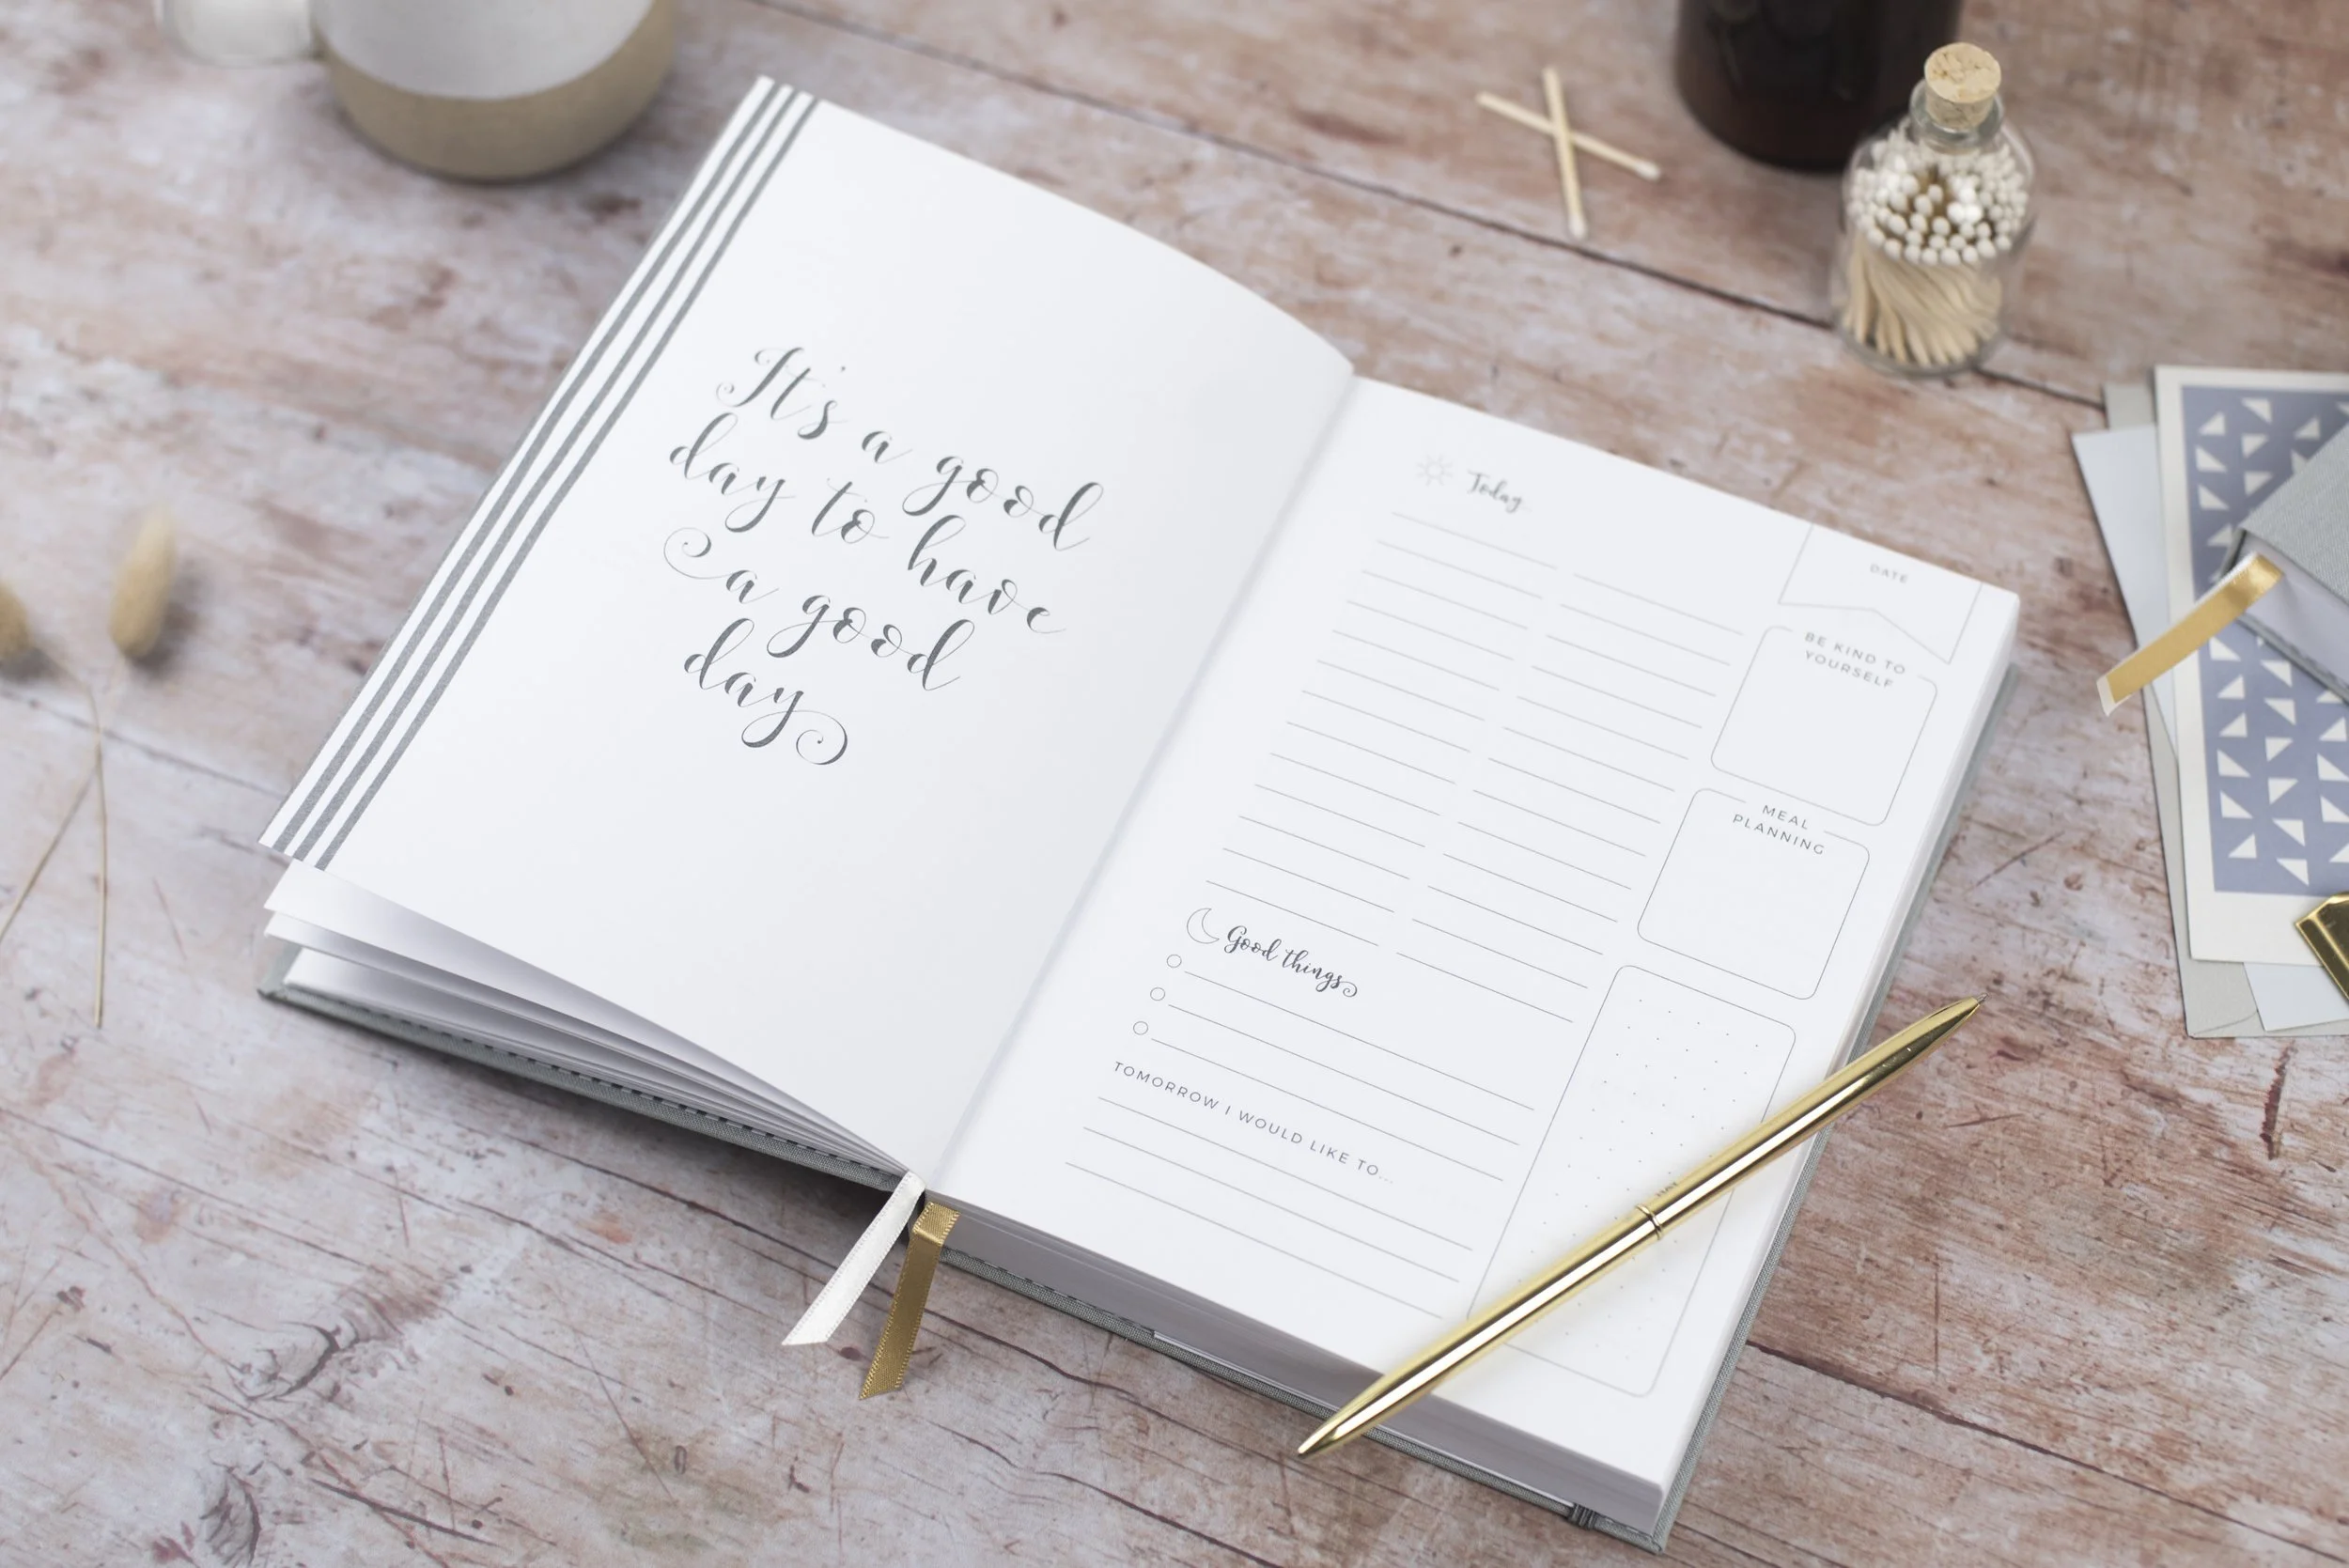 It's a good
day to have
a good
day
Today
DATE
BE KIND TO
YOURSELF
MEAL
PLANNING
Good things
TOMORROW I WOULD LIKE TO...